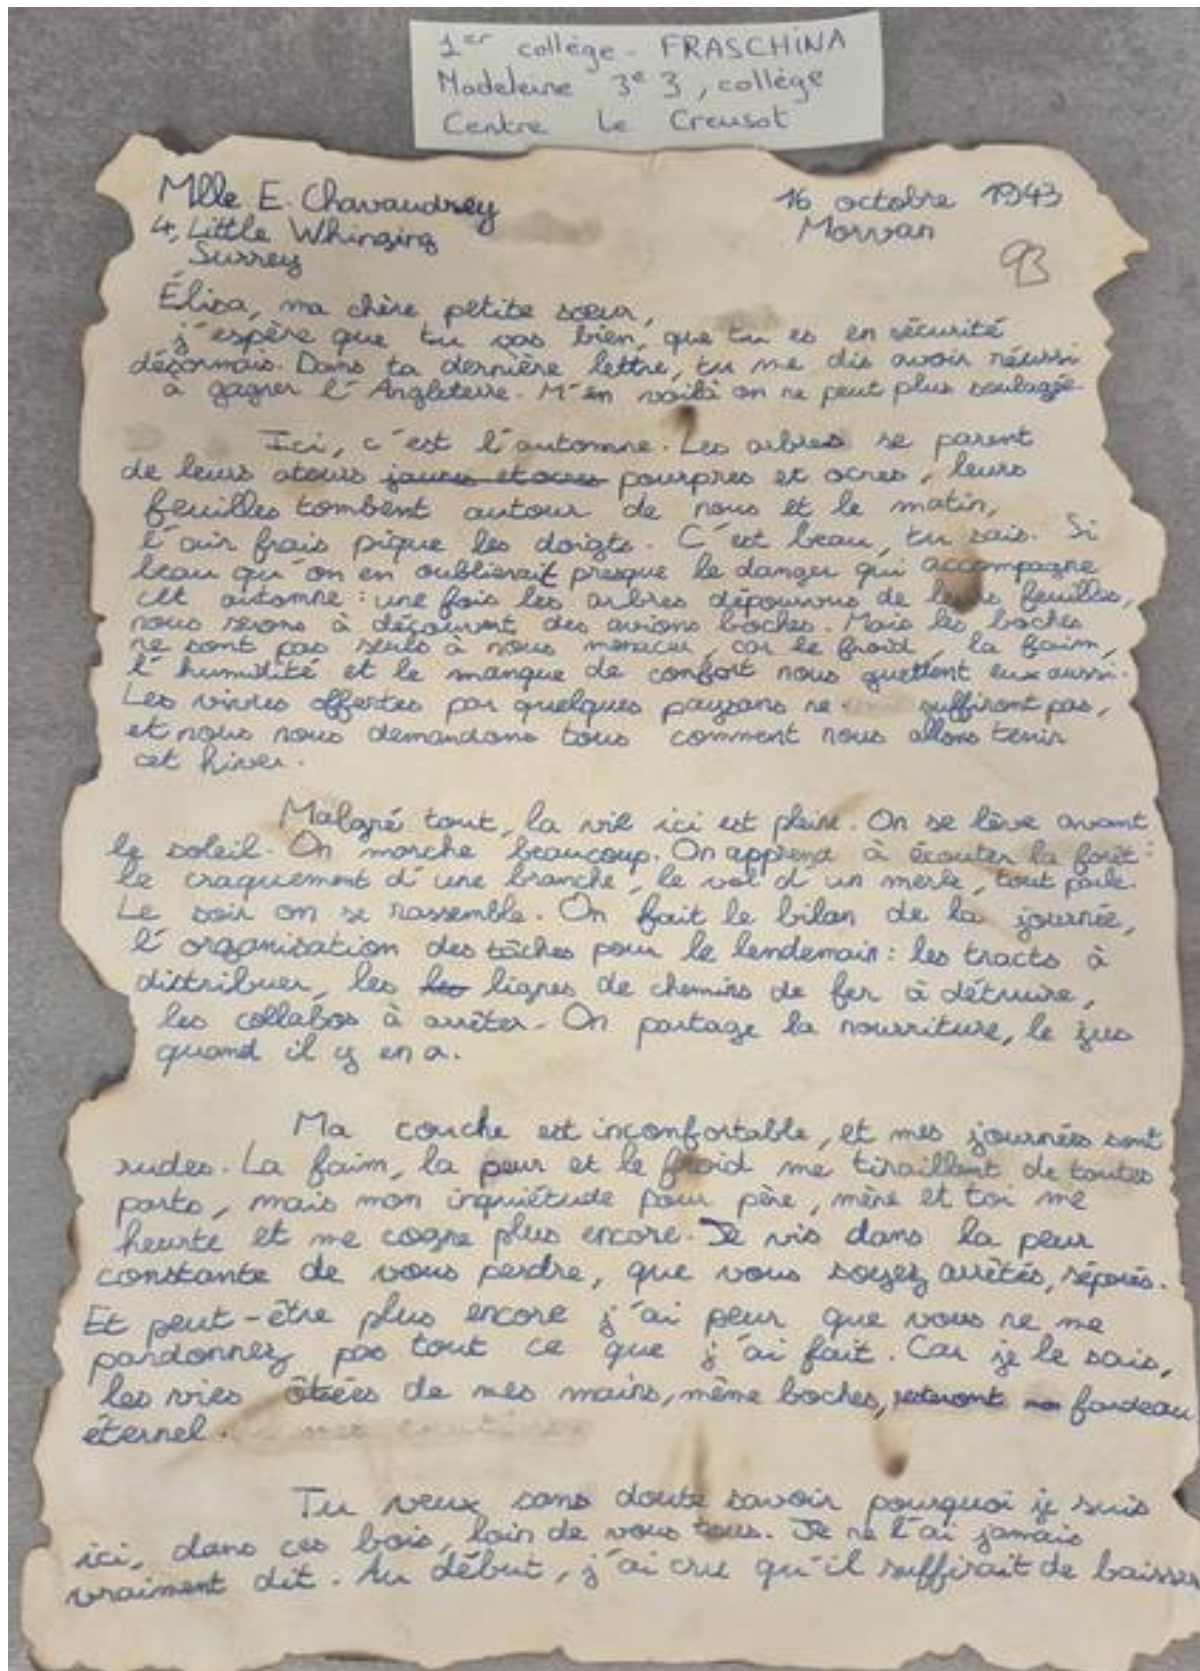 1er collège - FRASCHINA
Madeleine 3e 3, collège
Centre Le Creusot
Mlle E. Chavaudrey
16 octobre 1943
4, Little Whinging
Morvan
Surrey
93
Élisa, ma chère petite sœur,
j'espère que tu vas bien, que tu es en sécurité
désormais. Dans ta dernière lettre, tu me dis avoir réussi
à gagner l'Angleterre. M'en voilà on ne peut plus soulagée
Ici, c'est l'automne. Les arbres se parent
de leurs atours jaunes et ocres pourpres et ocres, leurs
feuilles tombent autour de nous et le matin,
l'air frais pique les doigts. C'est beau, tu sais. Si
beau qu'on en oublierait presque le danger qui accompagne
cet automne : une fois les arbres dépourvus de leurs feuilles,
nous serons à découvert des avions boches. Mais les boches
ne sont pas seuls à nous menacer, car le froid, la faim,
l'humidité et le manque de confort nous guettent eux aussi.
Les vivres offertes par quelques paysans ne suffiront pas,
et nous nous demandons tous comment nous allons tenir
cet hiver.
Malgré tout, la vie ici est pleine. On se lève avant
le soleil. On marche beaucoup. On apprend à écouter la forêt :
le craquement d'une branche, le vol d'un merle, tout parle.
Le soir on se rassemble. On fait le bilan de la journée,
l'organisation des tâches pour le lendemain : les tracts à
distribuer, les les lignes de chemins de fer à détruire,
les collabos à arrêter. On partage la nourriture, le jus
quand il y en a.
Ma couche est inconfortable, et mes journées sont
rudes. La faim, la peur et le froid me tiraillent de toutes
parts, mais mon inquiétude pour père, mère et toi me
heurte et me cogne plus encore. Je vis dans la peur
constante de vous perdre, que vous soyez arrêtés, séparés.
Et peut-être plus encore j'ai peur que vous ne me
pardonnez pas tout ce que j'ai fait. Car je le sais,
les vies ôtées de mes mains, même boches, resteront mon fardeau
éternel.
Tu veux sans doute savoir pourquoi je suis
ici, dans ces bois, loin de vous tous. Je ne l'ai jamais
vraiment dit. Au début, j'ai cru qu'il suffirait de baisser